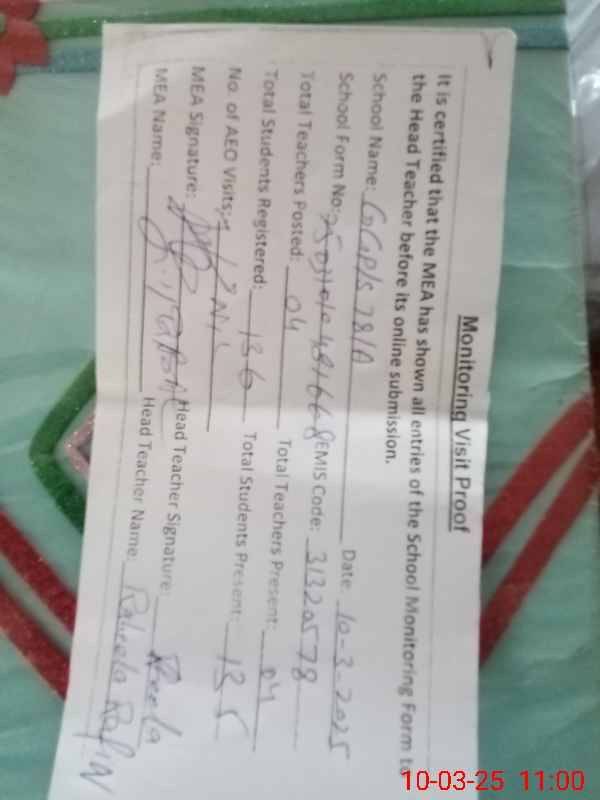 Monitoring Visit Proof
It is certified that the MEA has shown all entries of the School Monitoring Form to
the Head Teacher before its online submission.
School Name: GGP/S 78/A Date: 10-3-2025
School Form No: EMIS Code: 31320578
Total Teachers Posted: 04 Total Teachers Present: 04
Total Students Registered: 136 Total Students Present: 135
No. of AEO Visits:
MEA Signature: Head Teacher Signature:
MEA Name: Head Teacher Name: Raheela
10-03-25 11:00